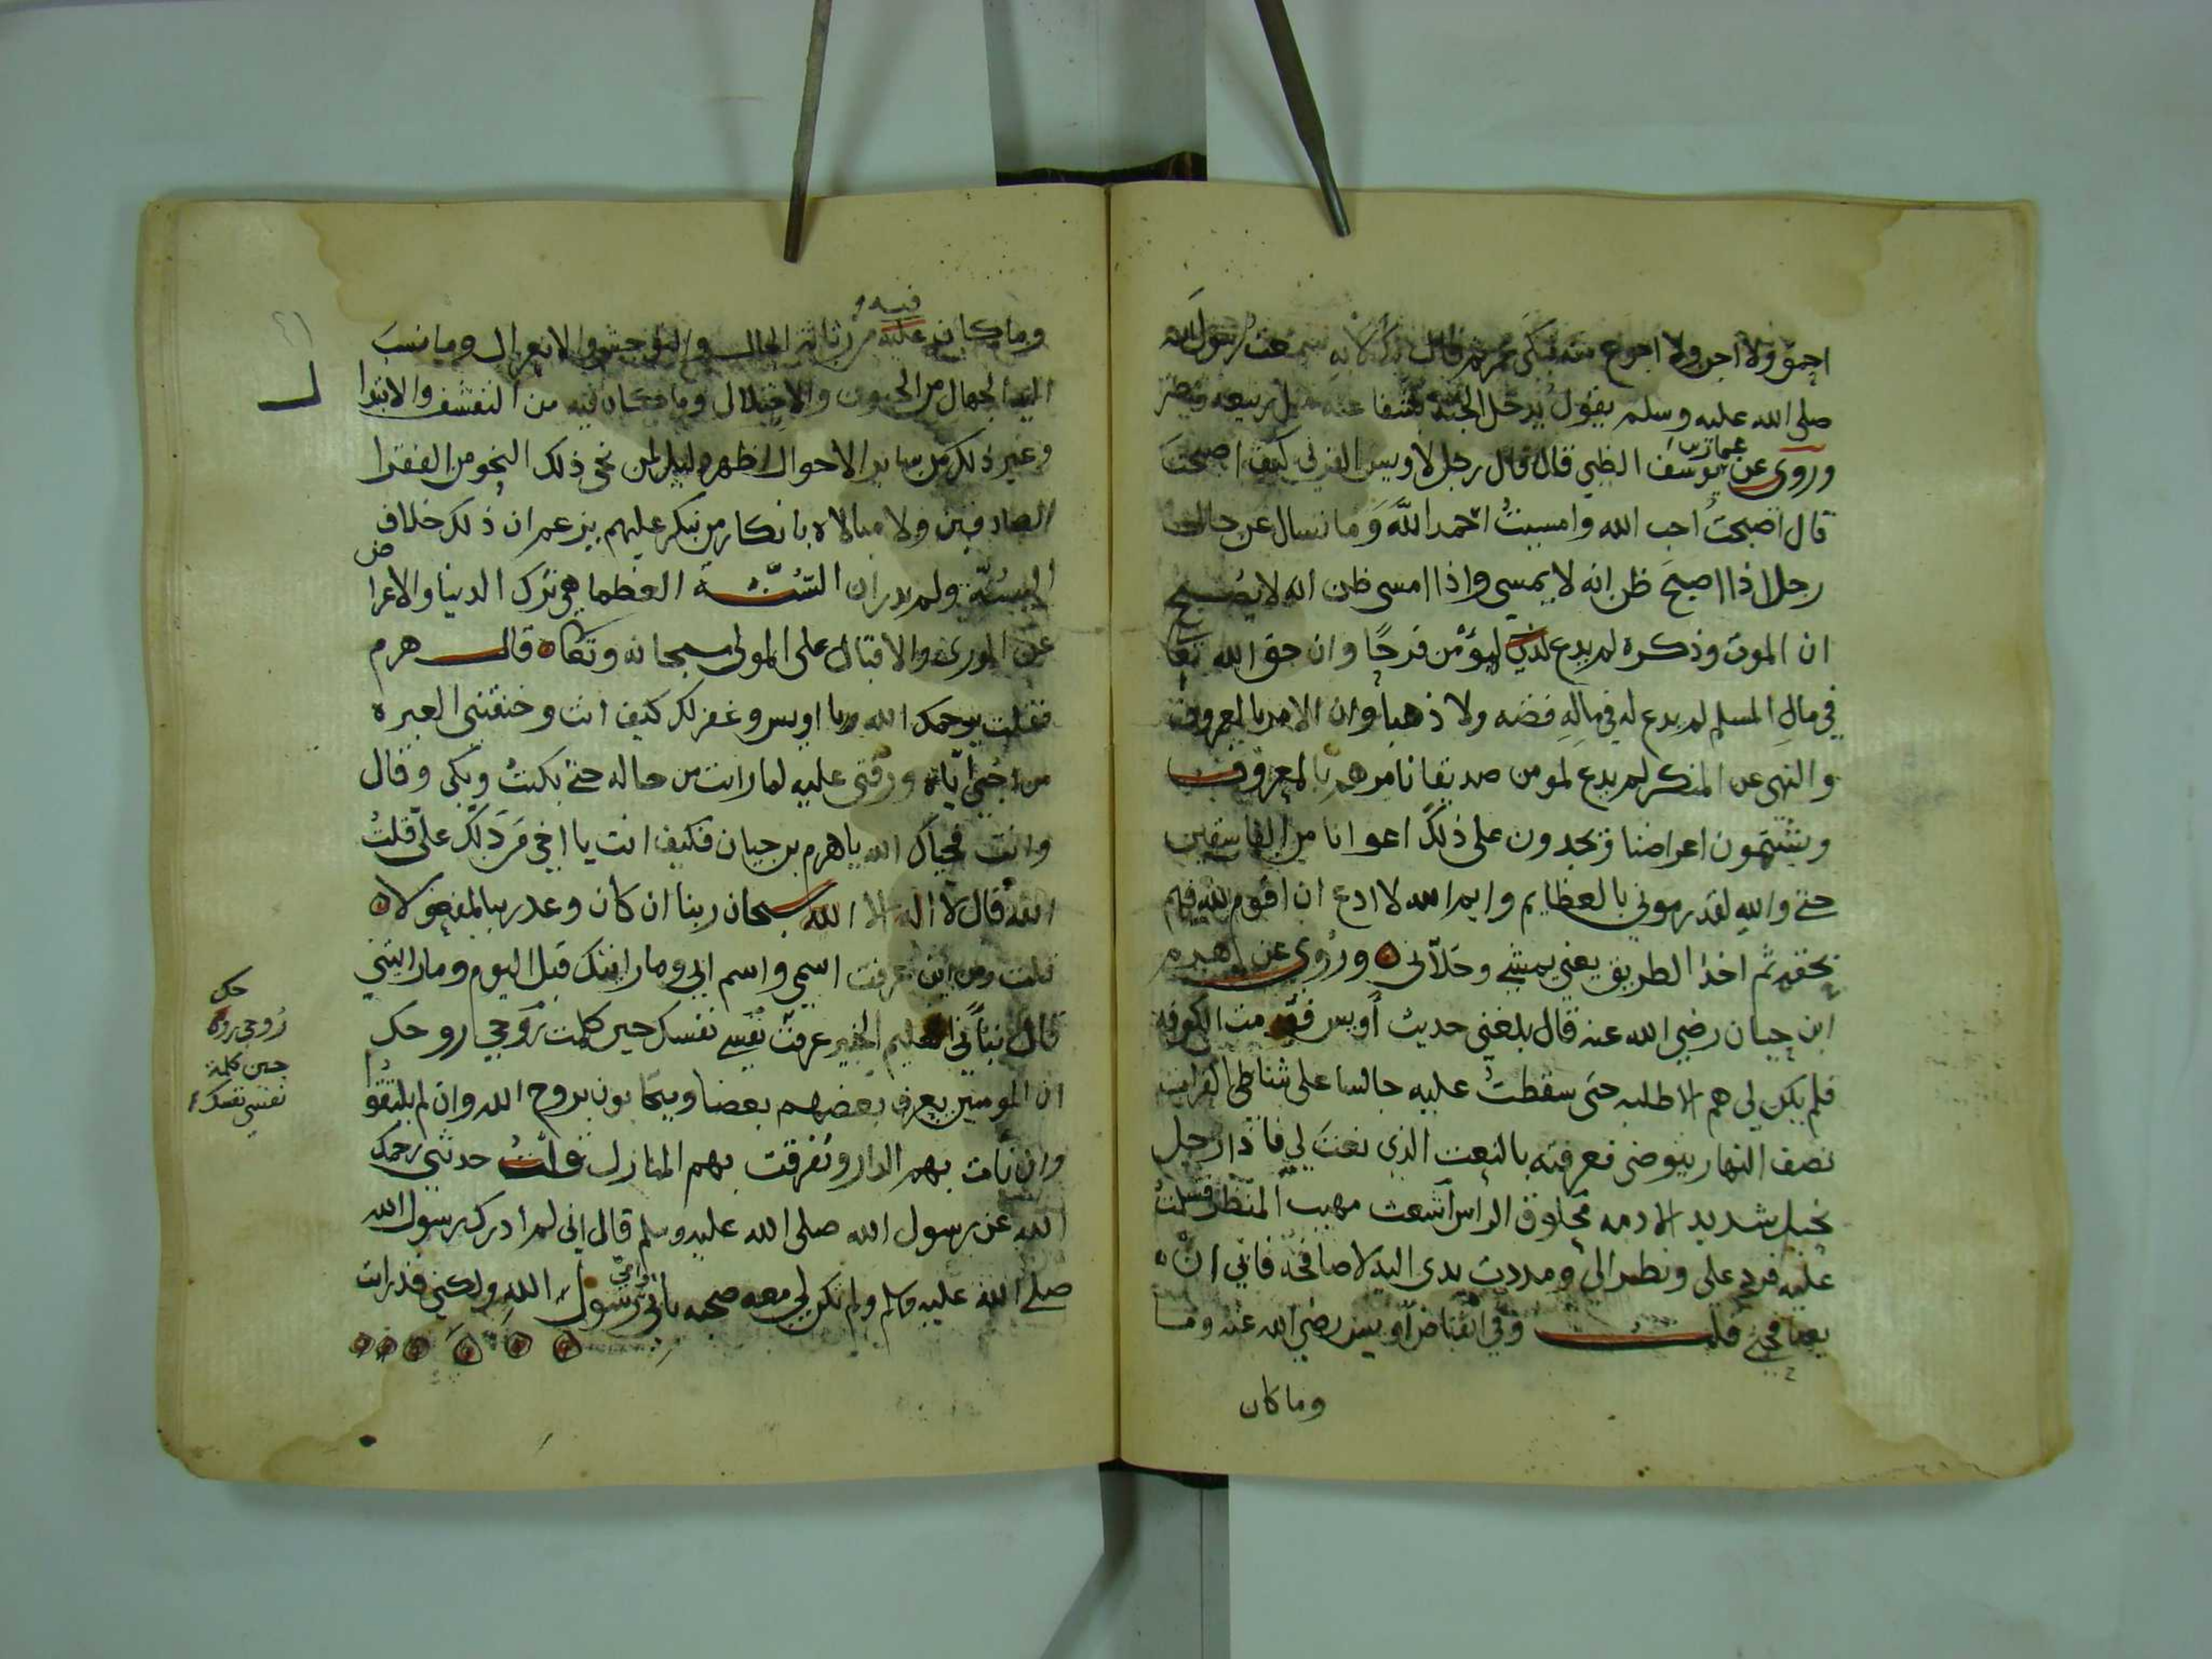 صلى الله عليه وسلم يقول يدخل الجنة بشفاعته مثل ربيعه ومضر
وروى عن عمار بن يوسف الظبي قال قال رجل لاويس القرني كيف اصبحت
قال اصبحتُ احب الله وامسيتُ احمد اللّه وما تسال عن حال
رجل اذا اصبحَ ظن انه لا يمسي واذا امسى ظن انه لا يُصبح
ان الموت وذكره لم يدع لمؤمن فرحًا وان حق الله تعا
في مالِ المسلم لم يدع له في مالِهِ فضه ولا ذهبا وان الامر بالمعروف
والنهي عن المنكر لم يدع لمومن صديقا نامرهم بالمعروف
ويشتمون اعراضنا ويجدون على ذلك اعوانا من الفاسقين
حتى والله لقد رموني بالعظايم وايم الله لا ادع ان اقوم لله فيهم
بحقه ثم اخذ الطريق يعني يمشي وخلاّني ه وروى عن هرم
ابن حيان رضي الله عنه قال بلغني حديث أويس فقدمت الكوفه
فلم يكن لي هم الا طلبه حتى سقطتُ عليه جالسا على شاطي الفرات
نصف النهار يتوضى فعرفته بالنعت الذي نعتَ لي فاذا رجل
نحيل شديد الادمه محلوق الراس اشعث مهيب المنظر فسلمتُ
عليه فرد على ونظر الىّ ومددت يدى اليه لاصافحه فابي ان
يصافحني قلت وفي انقباض أويس رضي الله عنه وما
وما كان
وما كان عليه فيه من رثاثة الحال والتوحش والانعزال وما نسبَ
اليه الجهال من الجنون والاختلال وما كان فيه من التقشف والابتدا
وغير ذلك من ساير الاحوال اظهر دليل لمن نحى ذلك النحو من الفقرا
الصادقين ولا مبالاه بانكار من ينكر عليهم يزعم ان ذلك خلاف
السُنّة ولم يدر ان السُّنة العظما هي ترك الدنيا والاعراض
عن الورى والاقبال على المولى سبحانه وتعالى ه قال هرم
فقلت يرحمك الله يا اويس وغفر لك كيف انت وخنقتني العبره
من حُبي اياه ورقتي عليه لما رايت من حاله حتى بكيتُ وبكى وقال
وانت فحياك الله يا هرم بن حيان فكيف انت يا اخي مَن دَلّك علىّ قلتُ
الله قال لا اله الا الله سبحان ربنا ان كان وعد ربنا لمفعولا ه
قلت ومن اين عرفت اسمي واسم ابي وما رايتك قبل اليوم وما رايتني
قال نبأَني العليم الخبير عرفتْ نفسي نفسك حين كلمت روحي روحك
ان المومنين يعرف بعضهم بعضا ويتحابون بروح الله وان لم يلتقوا
وان نأت بهم الدار وتفرقت بهم المنازل قلتُ حدثني رحمك
الله عن رسول الله صلى الله عليه وسلم قال اني لم ادرك رسول الله
صلى الله عليه وسلم ولم تكن لي معه صحبه بابي وامي رسول الله ولكني قد رايت
روحي روحك
حين كلمت
نفسي نفسك